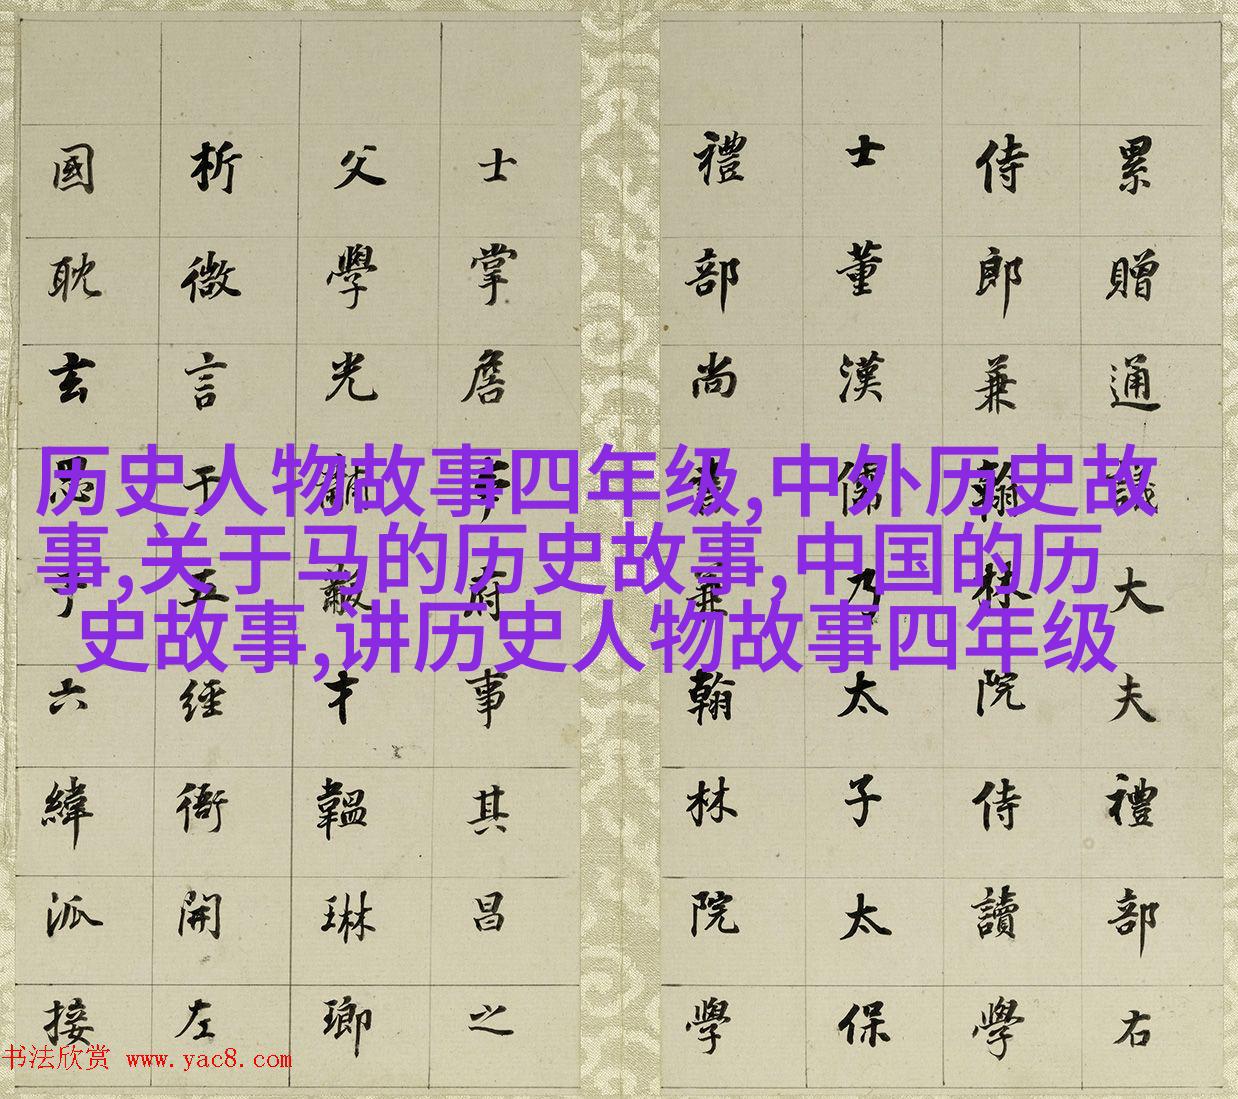 累贈通議大夫禮部右
侍郎兼翰林院侍讀學
士董漢儒乃太子太保
禮部尚書兼翰林院學
士掌詹事府事其昌之
父學光黼黻才韞琳瑯
析微言于五經衙開左
國耽玄思于六緯派接
历史人物故事四年级,中外历史故
事,关于马的历史故事,中国的历
史故事,讲历史人物故事四年级
书法欣赏 www.yac8.com